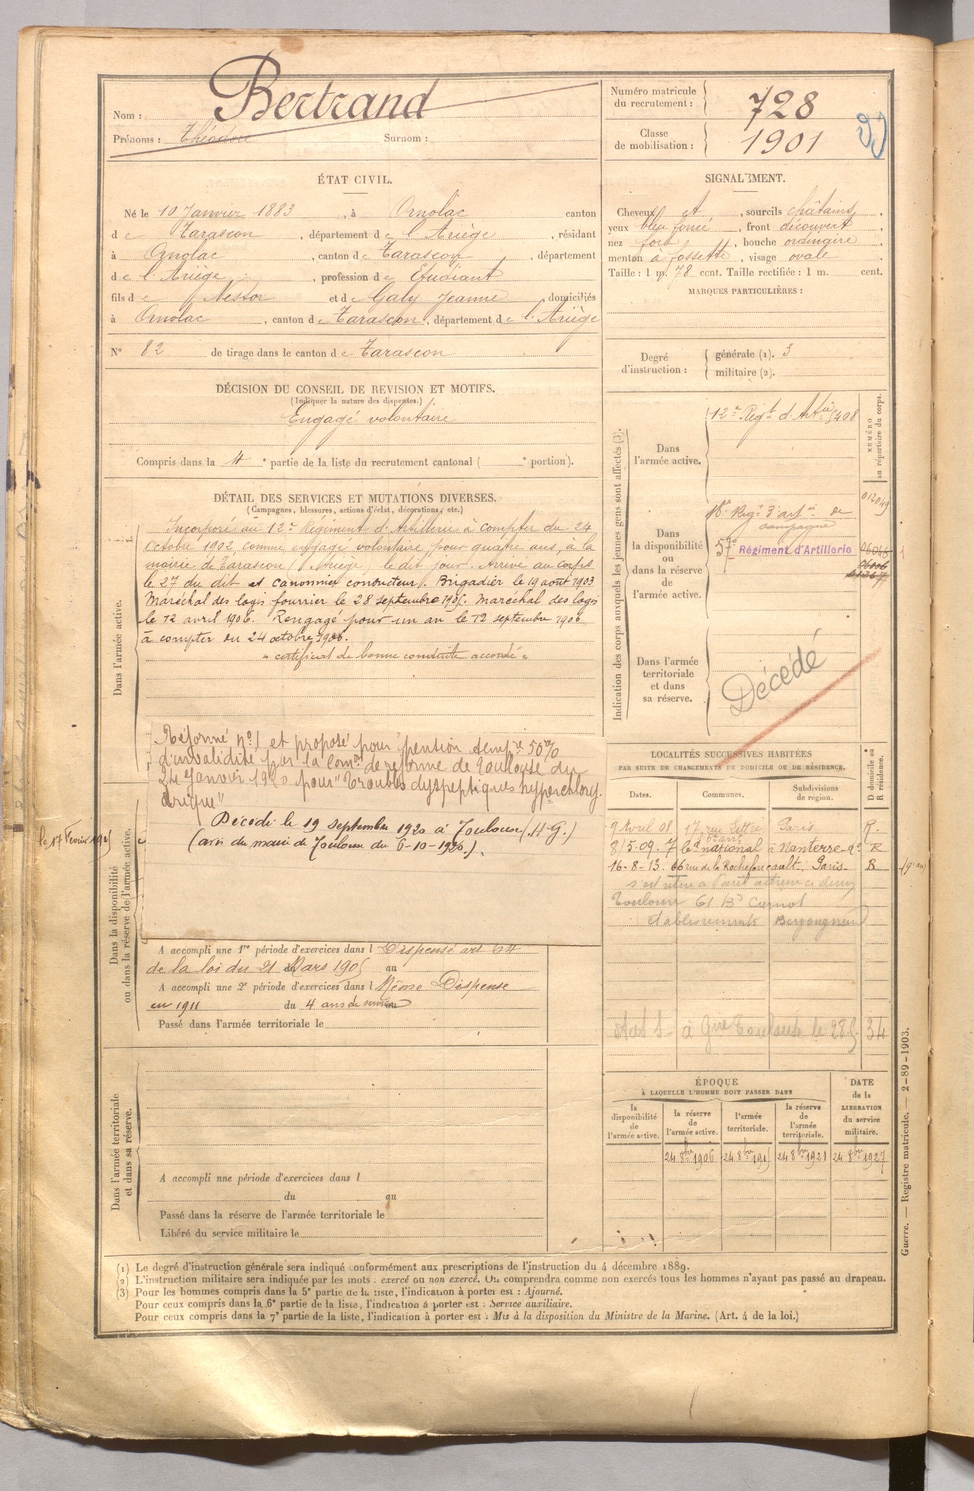 Nom : Bertrand
Prénoms : Théodore Surnom :
Numéro matricule du recrutement : 728
Classe de mobilisation : 1901
ÉTAT CIVIL.
Né le 10 Janvier 1883, à Ornolac canton
de Tarascon, département de l'Ariège, résidant
à Ornolac, canton de Tarascon, département
de l'Ariège, profession de Etudiant
fils de Nestor et de Galy Jeanne domiciliés
à Ornolac, canton de Tarascon, département de l'Ariège
N° 82 de tirage dans le canton de Tarascon
SIGNALEMENT.
Cheveux et, sourcils châtains,
yeux bleu foncé, front découvert
nez fort, bouche ordinaire
menton à fossette, visage ovale
Taille : 1 m. 78 cent. Taille rectifiée : 1 m. cent.
MARQUES PARTICULIÈRES :
Degré d'instruction : générale (1). 3
militaire (2).
DÉCISION DU CONSEIL DE REVISION ET MOTIFS.
(Indiquer la nature des dispenses.)
Engagé volontaire
Compris dans la 4e partie de la liste du recrutement cantonal ( e portion).
DÉTAIL DES SERVICES ET MUTATIONS DIVERSES.
(Campagnes, blessures, actions d'éclat, décorations, etc.)
Dans l'armée active.
Incorporé au 12e Régiment d'Artillerie à compter du 24
Octobre 1902, comme engagé volontaire, pour quatre ans, à la
mairie de Tarascon (Ariège) le dit jour. Arrivé au corps
le 27 du dit et canonnier conducteur. Brigadier le 19 août 1903
Maréchal des logis fourrier le 28 septembre 1905. Maréchal des logis
le 12 avril 1906. Rengagé pour un an le 12 septembre 1906
à compter du 24 octobre 1906.
"certificat de bonne conduite accordé"
Dans la disponibilité ou dans la réserve de l'armée active.
Réformé n°1 et proposé pour pension temp.re 50%
d'invalidité par la Com.on de réforme de Toulouse du
24 Janvier 1920 pour "Troubles dyspeptiques hyperchlory-
drique"
Décédé le 19 Septembre 1920 à Toulouse (H.G.)
(avis du maire de Toulouse du 6-10-1920).
le 17 Février
A accompli une 1re période d'exercices dans l Dispensé art
de la loi du 21 Mars 1905 au
A accompli une 2e période d'exercices dans l Même Dispense
en 1911 du 4 ans de service au
Passé dans l'armée territoriale le
Dans l'armée territoriale et dans sa réserve.
A accompli une période d'exercices dans l
du au
Passé dans la réserve de l'armée territoriale le
Libéré du service militaire le
Indication des corps auxquels les jeunes gens sont affectés (3).
NUMÉRO au répertoire du corps.
Dans l'armée active.
12e Régt d'Artie 1408
Dans la disponibilité ou dans la réserve de l'armée active.
18e Régt d'art.ie de
campagne
57e Régiment d'Artillerie
Dans l'armée territoriale et dans sa réserve.
Décédé
LOCALITÉS SUCCESSIVES HABITÉES
PAR SUITE DE CHANGEMENTS DE DOMICILE OU DE RÉSIDENCE.
Dates. Communes. Subdivisions de région. D domicile ou R résidence.
9 Avril 08 17 rue Paris R.
8/5-09. 7 bd national à Nanterre R
16-8-13. 66 rue de la Rochefoucault. Paris R
Toulouse 61 Bd Carnot
Etablissements
ÉPOQUE
À LAQUELLE L'HOMME DOIT PASSER DANS
la disponibilité de l'armée active.
la réserve de l'armée active.
l'armée territoriale.
la réserve de l'armée territoriale.
DATE de la LIBÉRATION du service militaire.
24 8bre 1906 24 8bre 191 24 8bre 1921 24 8bre 1927
Guerre. — Registre matricule. — 2-89-1903.
(1) Le degré d'instruction générale sera indiqué conformément aux prescriptions de l'instruction du 4 décembre 1889.
(2) L'instruction militaire sera indiquée par les mots : exercé ou non exercé. On comprendra comme non exercés tous les hommes n'ayant pas passé au drapeau.
(3) Pour les hommes compris dans la 5e partie de la liste, l'indication à porter est : Ajourné.
Pour ceux compris dans la 6e partie de la liste, l'indication à porter est : Service auxiliaire.
Pour ceux compris dans la 7e partie de la liste, l'indication à porter est : Mis à la disposition du Ministre de la Marine. (Art. 4 de la loi.)